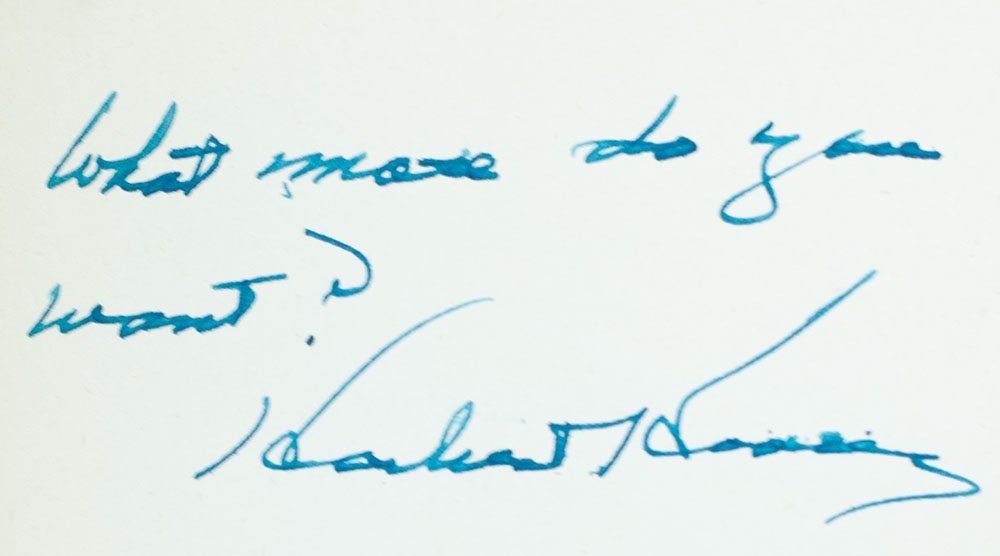 What more do you
want?
Herbert Hoover